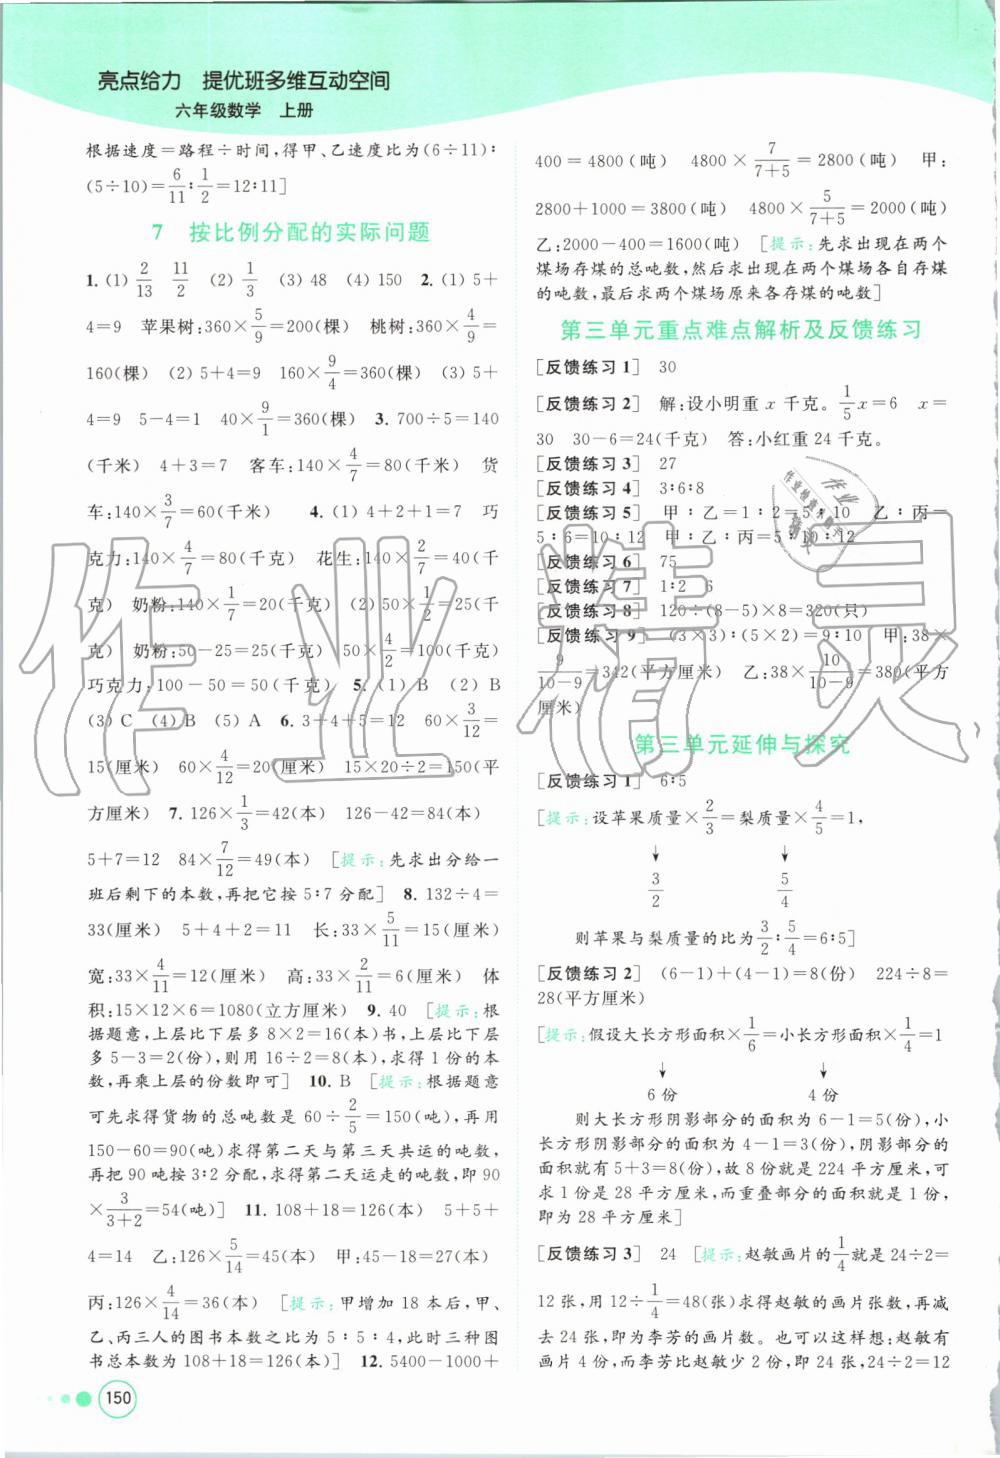 亮点给力　提优班多维互动空间
六年级数学　上册
根据速度=路程÷时间,得甲、乙速度比为(6÷11)∶
(5÷10)=6/11∶1/2=12∶11]
7　按比例分配的实际问题
1. (1) 2/13　11/2　(2) 1/3　(3) 48　(4) 150　2. (1) 5+
4=9　苹果树:360×5/9=200(棵)　桃树:360×4/9=
160(棵)　(2) 5+4=9　160×9/4=360(棵)　(3) 5+
4=9　5-4=1　40×9/1=360(棵)　3. 700÷5=140
(千米)　4+3=7　客车:140×4/7=80(千米)　货
车:140×3/7=60(千米)　4. (1) 4+2+1=7　巧
克力:140×4/7=80(千克)　花生:140×2/7=40(千
克)　奶粉:140×1/7=20(千克)　(2) 50×1/2=25(千
克)　奶粉:50-25=25(千克)　50×4/2=100(千克)
巧克力:100-50=50(千克)　5. (1) B　(2) B
(3) C　(4) B　(5) A　6. 3+4+5=12　60×3/12=
15(厘米)　60×4/12=20(厘米)　15×20÷2=150(平
方厘米)　7. 126×1/3=42(本)　126-42=84(本)
5+7=12　84×7/12=49(本)　[提示:先求出分给一
班后剩下的本数,再把它按5∶7分配]　8. 132÷4=
33(厘米)　5+4+2=11　长:33×5/11=15(厘米)
宽:33×4/11=12(厘米)　高:33×2/11=6(厘米)　体
积:15×12×6=1080(立方厘米)　9. 40　[提示:根
据题意,上层比下层多8×2=16(本)书,上层比下层
多5-3=2(份),则用16÷2=8(本),求得1份的本
数,再乘上层的份数即可]　10. B　[提示:根据题意
可先求得货物的总吨数是60÷2/5=150(吨),再用
150-60=90(吨)求得第二天与第三天共运的吨数,
再把90吨按3∶2分配,求得第二天运走的吨数,即90
×3/3+2=54(吨)]　11. 108+18=126(本)　5+5+
4=14　乙:126×5/14=45(本)　甲:45-18=27(本)
丙:126×4/14=36(本)　[提示:甲增加18本后,甲、
乙、丙三人的图书本数比为5∶5∶4,此时三种图
书总本数为108+18=126(本)]　12. 5400-1000+
400=4800(吨)　4800×7/7+5=2800(吨)　甲:
2800+1000=3800(吨)　4800×5/7+5=2000(吨)
乙:2000-400=1600(吨)　[提示:先求出现在两个
煤场存煤的总吨数,然后求出现在两个煤场各自存煤
的吨数,最后求两个煤场原来各存煤的吨数]
第三单元重点难点解析及反馈练习
[反馈练习1]　30
[反馈练习2]　解:设小明重x千克。1/5x=6　x=
30　30-6=24(千克)　答:小红重24千克。
[反馈练习3]　27
[反馈练习4]　3∶6∶8
[反馈练习5]　甲∶乙=1∶2=5∶10　乙∶丙=
5∶6=10∶12　甲∶乙∶丙=5∶10∶12
[反馈练习6]　75
[反馈练习7]　1∶2　6
[反馈练习8]　120÷(8-5)×8=320(只)
[反馈练习9]　(3×3)∶(5×2)=9∶10　甲:38×
9/10-9=342(平方厘米)　乙:38×10/10-9=380(平方
厘米)
第三单元延伸与探究
[反馈练习1]　6∶5
[提示:设苹果质量×2/3=梨质量×4/5=1,
↓　↓
3/2　5/4
则苹果与梨质量的比为3/2∶5/4=6∶5]
[反馈练习2]　(6-1)+(4-1)=8(份)　224÷8=
28(平方厘米)
[提示:假设大长方形面积×1/6=小长方形面积×1/4=1
↓　↓
6份　4份
则大长方形阴影部分的面积为6-1=5(份),小
长方形阴影部分的面积为4-1=3(份),阴影部分的
面积就有5+3=8(份),故8份就是224平方厘米,可
求1份是28平方厘米,而重叠部分的面积有1份,
即为28平方厘米]
[反馈练习3]　24　[提示:赵敏画片的1/4就是24÷2=
12张,用12÷1/4=48(张)求得赵敏的画片张数,再减
去24张,即为李芳的画片数。也可以这样想:赵敏有
画片4份,而李芳比赵敏少2份,即24张,24÷2=12
150
作业精灵